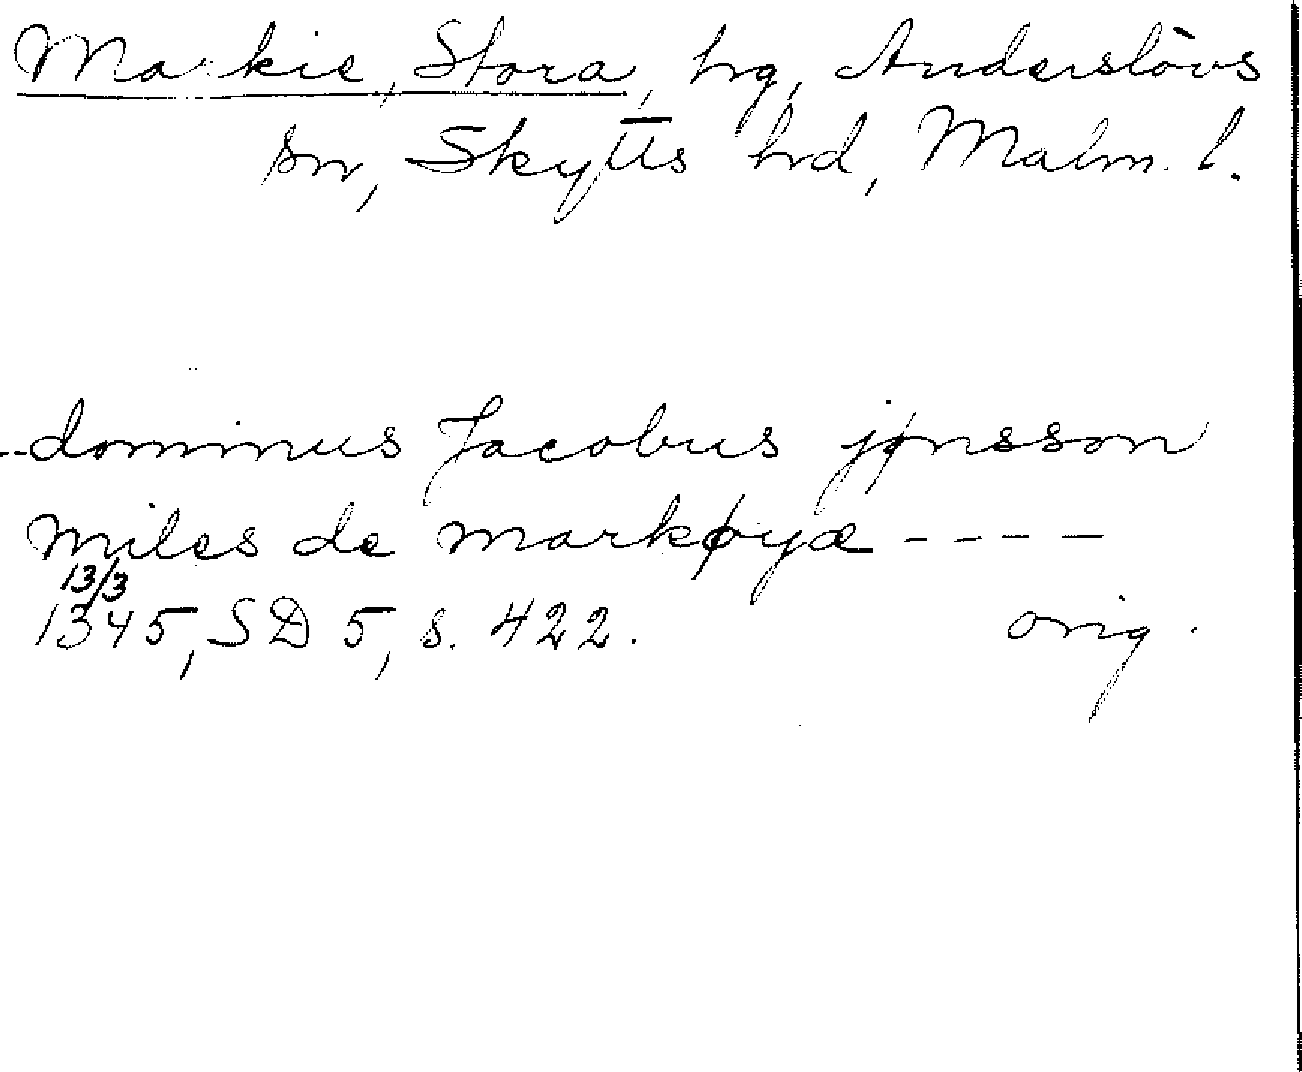 Markie, Stora, hg, Anderslövs
sn, Skytts hrd, Malm. l.
--dominus Jacobus jønsson
miles de markøyæ ----
13/3
1345, SD 5, s. 422. orig.